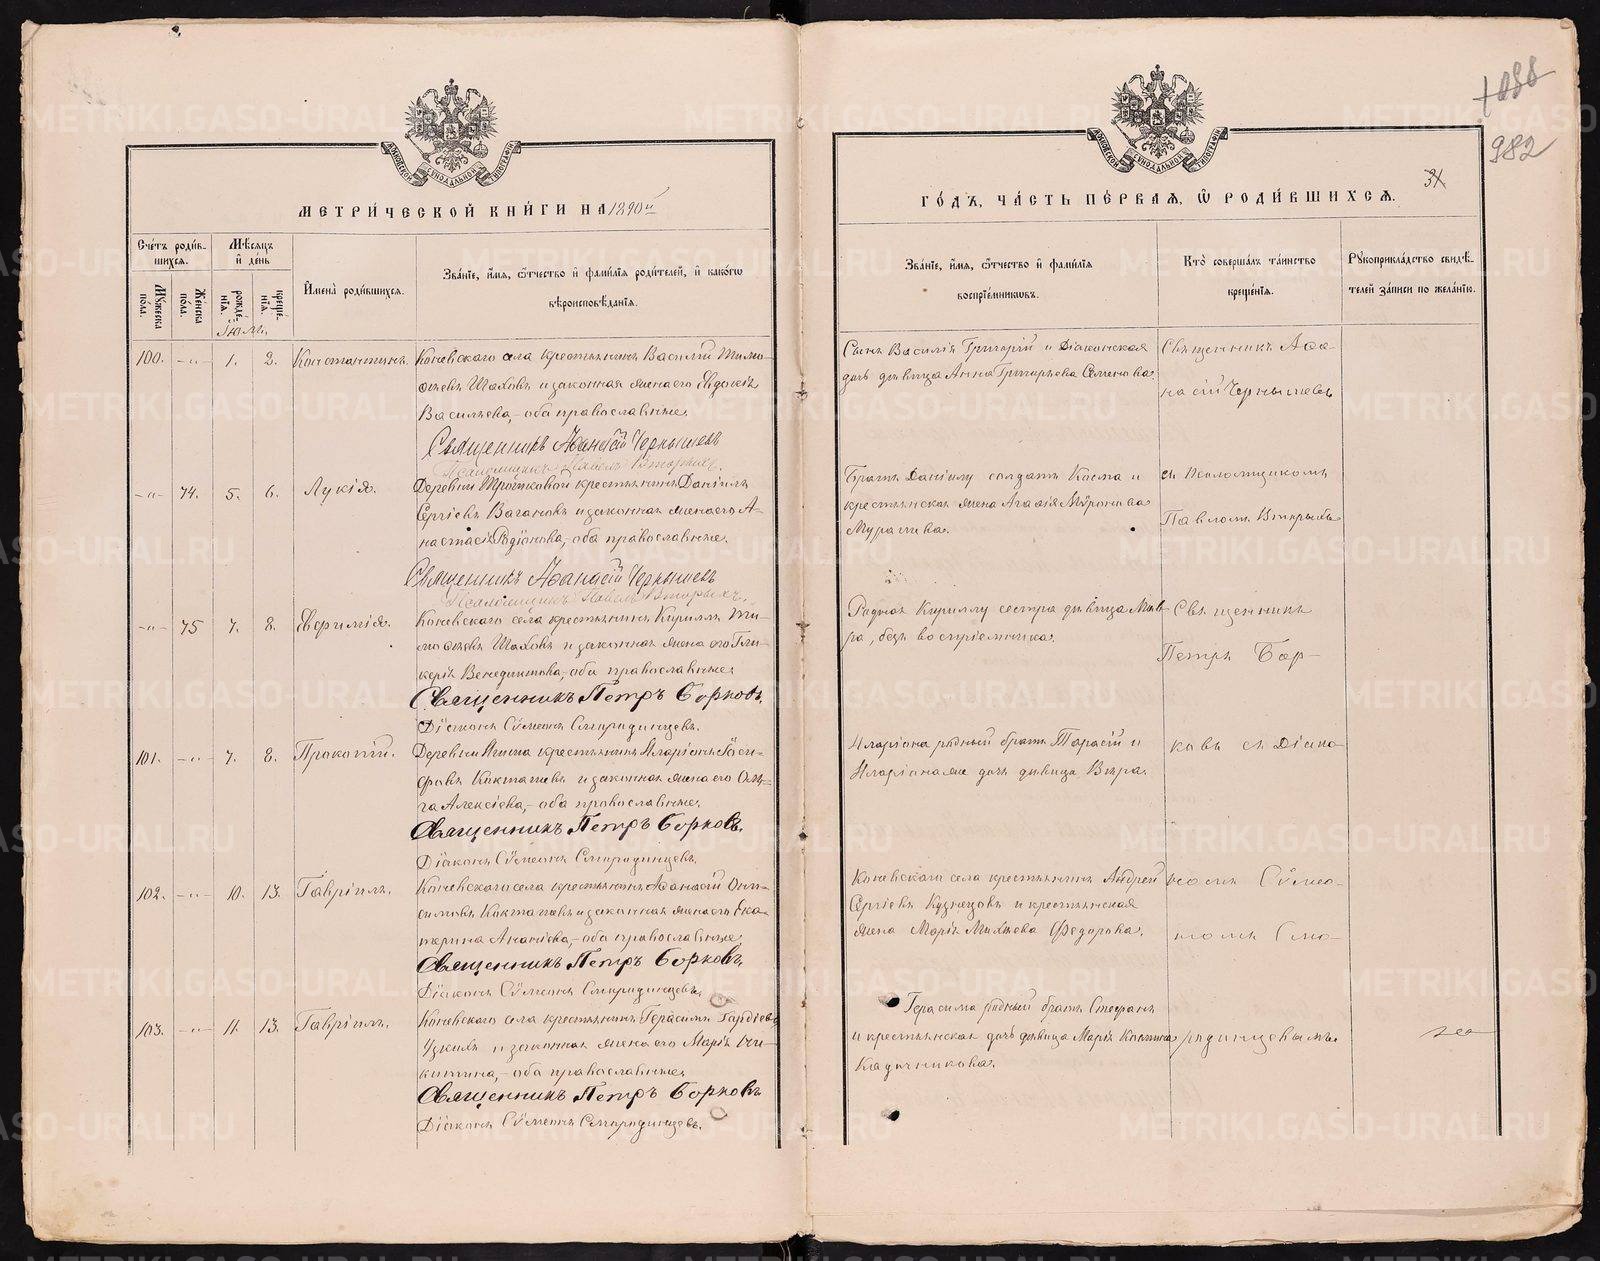 1088
982
31
МОСКОВСКОЙ СѴНОДАЛЬНОЙ ТИПОГРАФІИ
МЕТРИ́ЧЕСКОЙ КНИ́ГИ НА 1890й
Сче́тъ роди́вшихся.
Мужеска пола.
Женска пола.
Мѣ́сяцъ и҆ де́нь
рожде́нія.
креще́нія.
И҆мена̀ роди́вшихся.
Зва́ніе, и҆́мя, ѻ҆́тчество и҆ фами́лія роди́телей, и҆ како́гѡ
вѣроисповѣ́данія.
Іюль.
100. -"- 1. 2. Константинъ.
Коневскаго села крестьянинъ Василій Тимо-
ѳеевъ Шаховъ и законная жена его Евдокія
Васильева,- оба православные.
Священникъ Аѳанасій Чернышевъ
Псаломщикъ Павелъ Вторыхъ.
-"- 74. 5. 6. Лукія.
Деревни крестьянинъ Даніилъ
Сергіевъ Вагановъ и законная жена его А-
настасія Родіонова,- оба православные.
Священникъ Аѳанасій Чернышевъ
Псаломщикъ Павелъ Вторыхъ.
-"- 75. 7. 8. Евфимія.
Коневскаго села крестьянинъ Кириллъ Ти-
моѳеевъ Шаховъ и законная жена его Гли-
керія Венедиктова,- оба православные.
Священникъ Петръ Борковъ.
Діаконъ Сѵмеонъ Смородинцевъ.
101. -"- 7. 8. Прокопій.
Деревни крестьянинъ Иларіонъ Іоси-
фовъ Кокшаровъ и законная жена его Оль-
га Алексіева,- оба православные.
Священникъ Петръ Борковъ.
Діаконъ Сѵмеонъ Смородинцевъ.
102. -"- 10. 13. Гавріилъ.
Коневскаго села крестьянинъ Аѳанасій Они-
симовъ и законная жена его Ека-
терина Ананіева,- оба православные.
Священникъ Петръ Борковъ.
Діаконъ Сѵмеонъ Смородинцевъ.
103. -"- 11. 13. Гавріилъ.
Коневскаго села крестьянинъ Герасимъ Гордіевъ
Узкихъ и законная жена его Марія Ни-
китина,- оба православные.
Священникъ Петръ Борковъ
Діаконъ Сѵмеонъ Смородинцевъ.
МОСКОВСКОЙ СѴНОДАЛЬНОЙ ТИПОГРАФІИ
ГО́ДЪ, ЧА́СТЬ ПЕ́РВАЯ, Ѡ҆ РОДИ́ВШИХСЯ.
Зва́ніе, и҆́мя, ѻ҆́тчество и҆ фами́лія
воспріе́мниковъ.
Кто̀ соверша́лъ та́инство
креще́нія.
Рꙋкоприкла́дство свидѣ́-
телей за́писи по жела́нію.
Сынъ Василія Григорій и Діаконская
дочь дѣвица Анна Григорьева Семенова.
Священникъ Аѳа-
насій Чернышевъ
Братъ Даніилу солдатъ Косма и
крестьянская жена Агаѳія Мѵронова
Мурашева.
съ Псаломщикомъ
Павломъ Вторыхъ.
Родная Кириллу сестра дѣвица Мав-
ра, безъ воспріемника.
Священникъ
Петръ Бор-
Иларіона родный братъ Тарасій и
Иларіона же дочь дѣвица Вѣра.
ковъ съ Діако-
Коневскаго села крестьянинъ Андрей
Сергіевъ Кузнецовъ и крестьянская
жена Марія Михѣева Федорова.
номъ Сѵмео-
номъ Смо-
Герасима родный братъ Стефанъ
и крестьянская дочь дѣвица Марія
Кадочникова.
родинцевымъ.